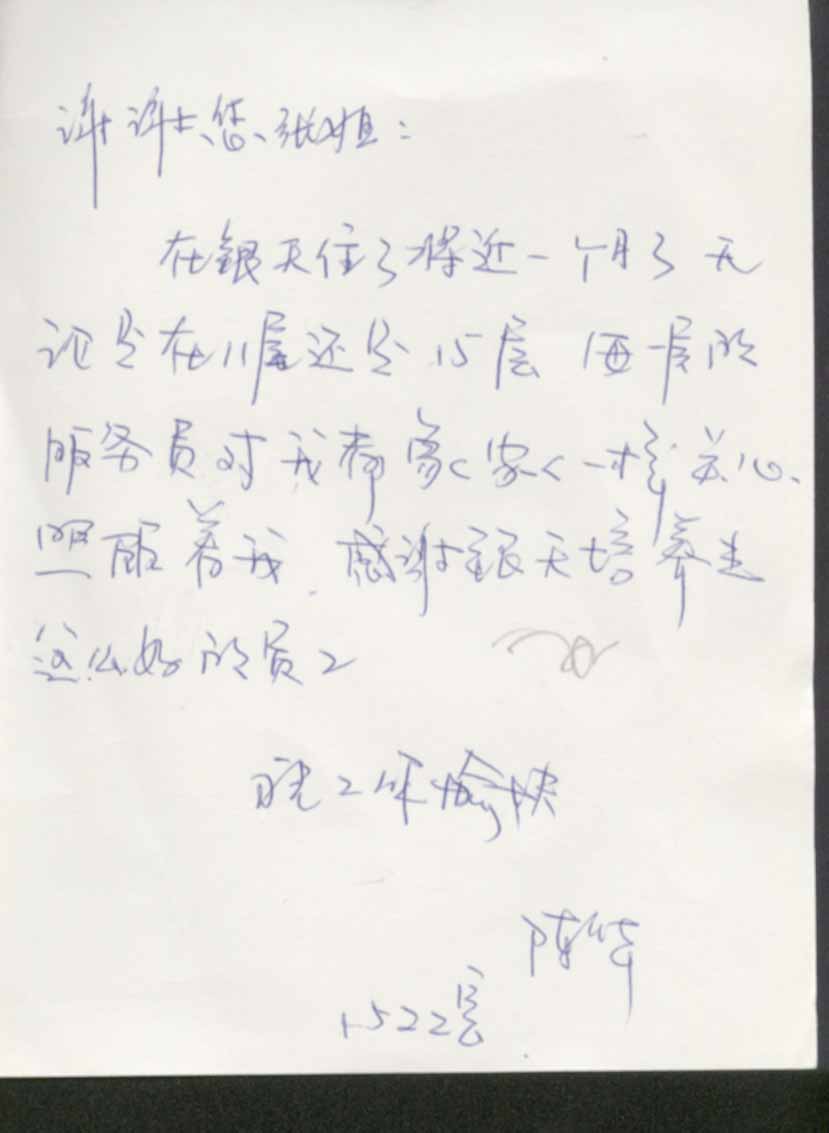 谢谢您、张姐：
在银天住了将近一个月了 无
论是在11层还是15层 每层的
服务员对我都象<家<一样关心、
照服着我．感谢银天培养出
这么好的员工
祝工作愉快
陈华
1522房